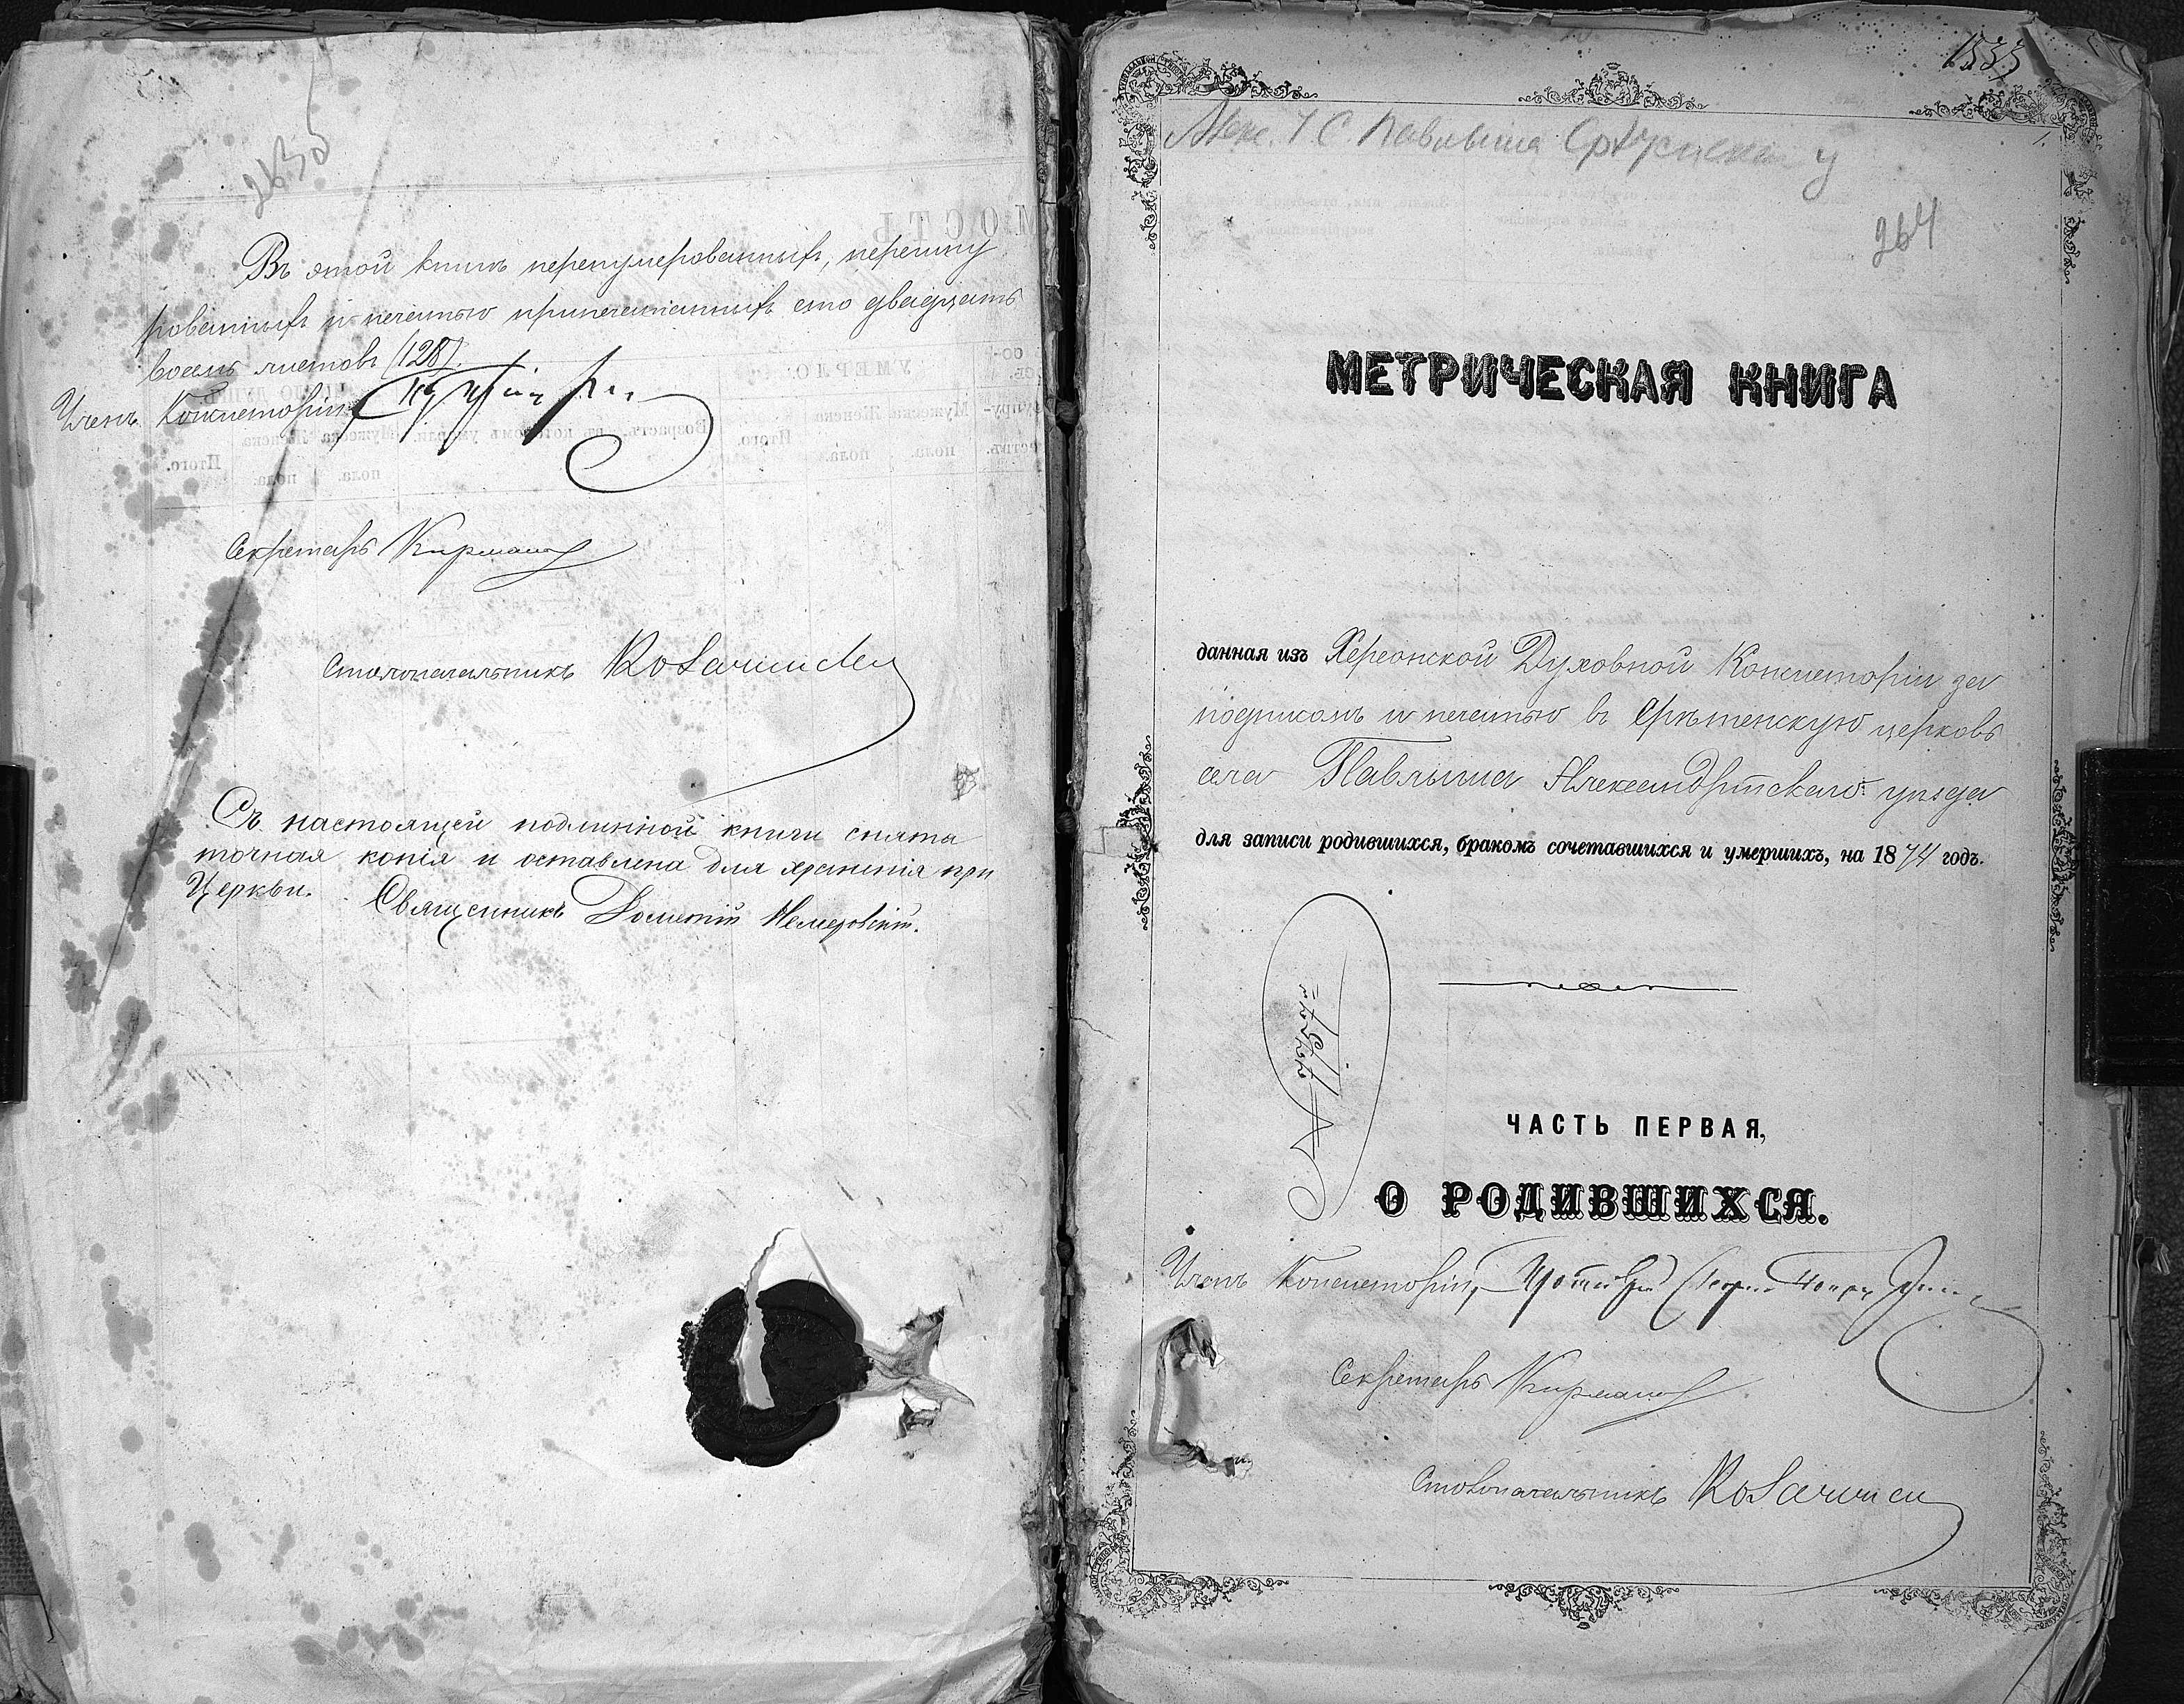 263 об
Въ этой книгѣ перенумерованныхъ, перешну
рованныхъ и печатью припечатанныхъ сто двадцать
восемь листовъ (128).
Членъ Консисторіи
Секретарь
Столоначальникъ
Съ настоящей подлинной книги снята
точная копія и оставлена для храненія при
Церкви. Священникъ
1533
264
МЕТРИЧЕСКАЯ КНИГА
данная изъ Херсонской Духовной Консисторіи за
подписомъ и печатью въ Срѣтенскую церковь
села Павлыша Александрійскаго уѣзда
для записи родившихся, бракомъ сочетавшихся и умершихъ, на 1874 годъ.
ЧАСТЬ ПЕРВАЯ,
О РОДИВШИХСЯ.
Членъ Консисторіи, Протоіерей
Секретарь
Столоначальникъ